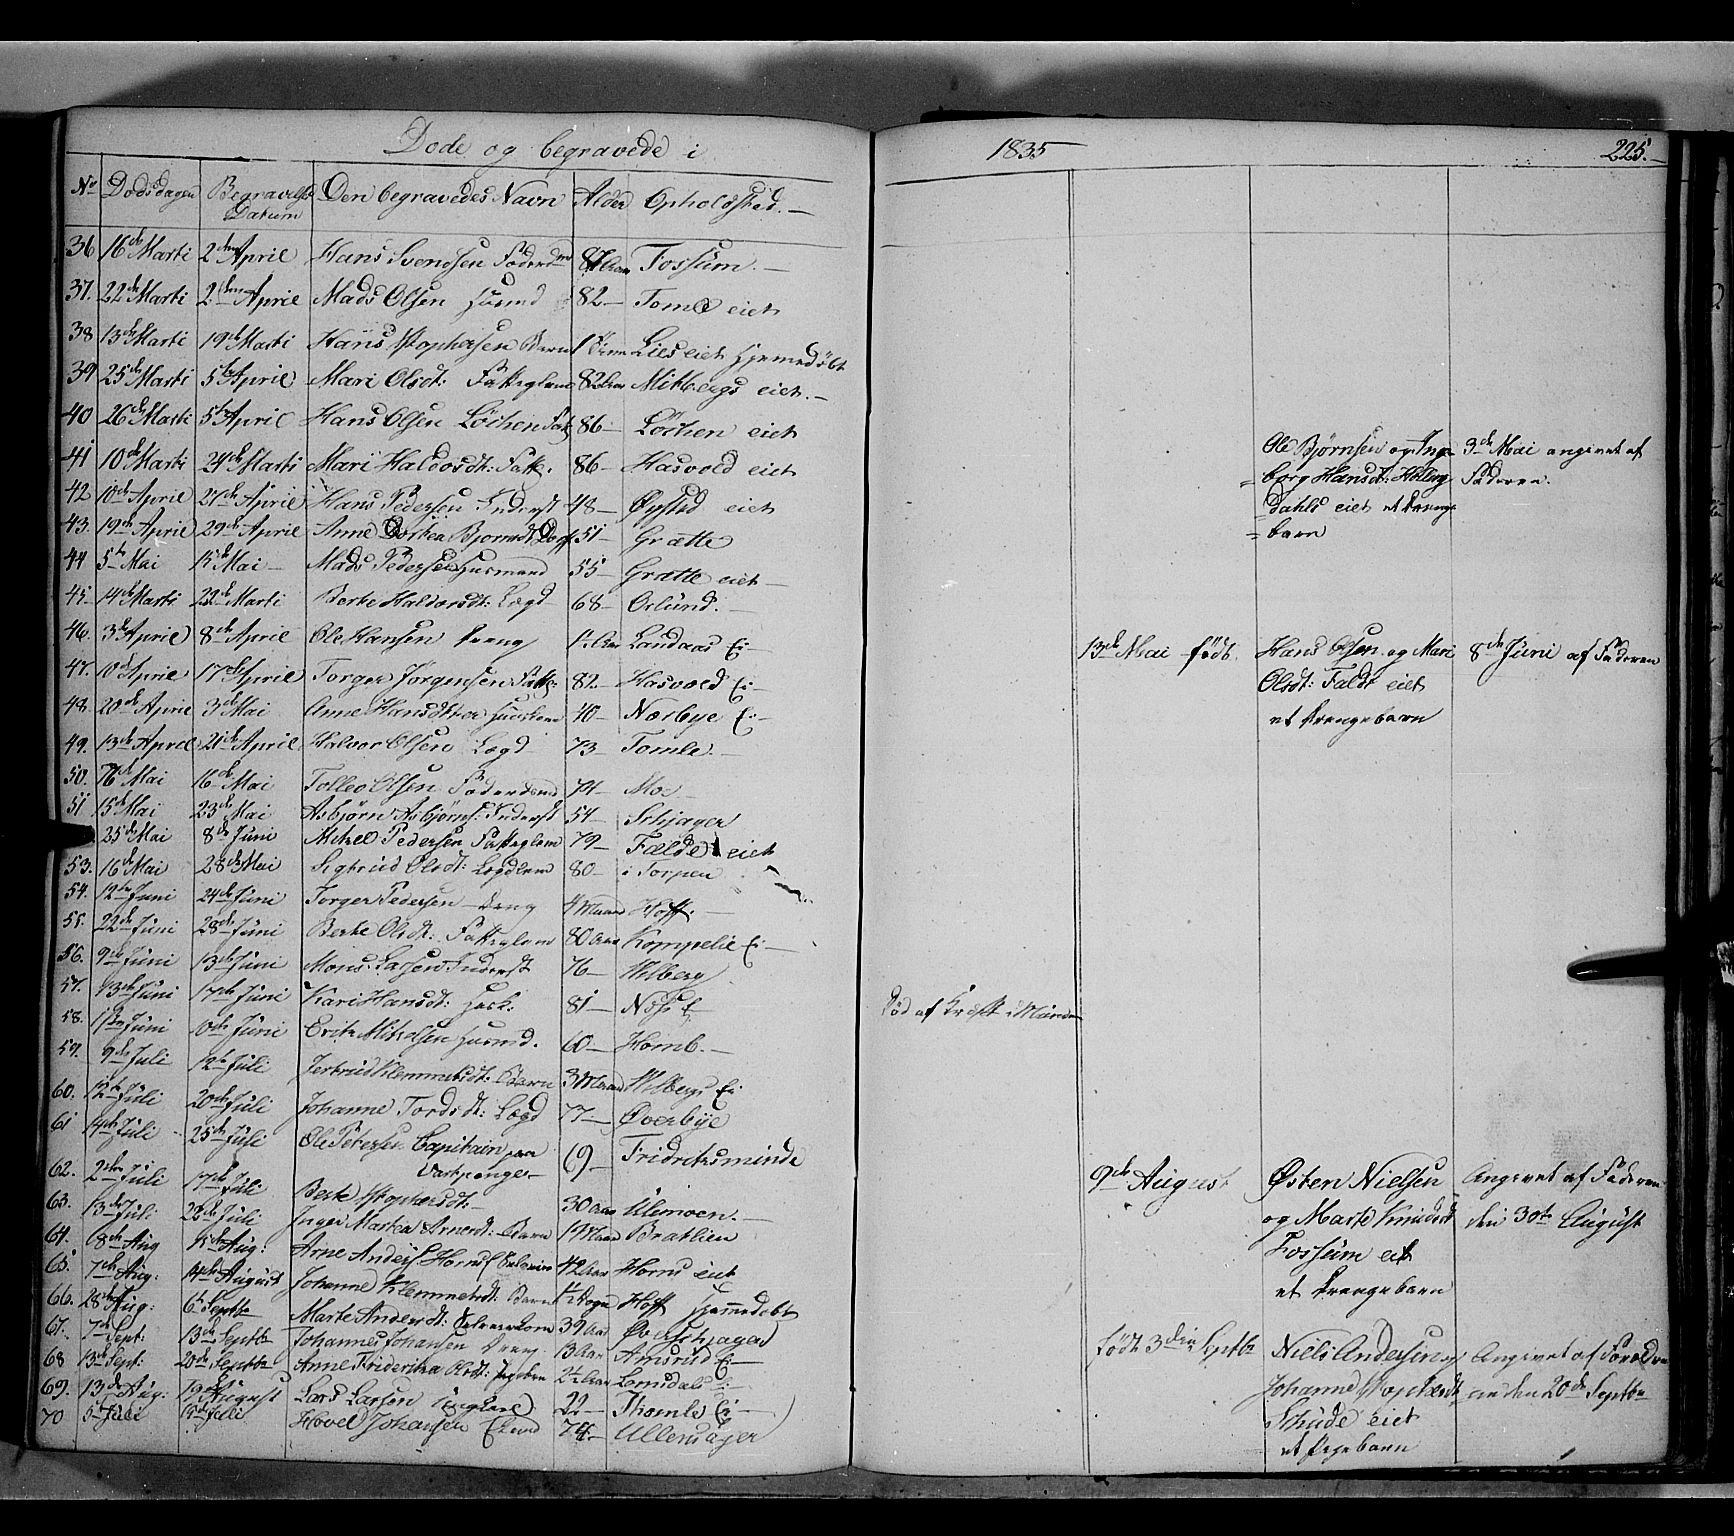 Døde og begravede i 1835 225.
No Dødsdagen Begravelses Datum Den begravedes Navn Alder Opholdsted.
36 16de Marti 2den April Hans Svendsen Føderdmd 87 Aar Fossum.
37. 22de Marti 2den April Mads Olsen Husmd 82 Tomle eiet
38 13de Marti 19de Marti Hans Stophersen Barn 1 Lies eiet Hjemmedøbt
39 25de Marti 5te April Mari Olsdt: Fattiglem 82 Aar Mitbergs eiet.
40 26de Marti 5te April Hans Olsen Løchen Fatt 86 Løchen eiet
41 10de Marti 24de Marti Mari Haldosdt: Fatt. 86 Hasvold eiet
42 10de April 27de April Hans Pedersen Inderst 48 Øysted eiet
43. 19de April 29de April Anne Dorthea Bjørnsdt 51 Grætte
44 5te Mai 15de Mai Mads Pedersen Husmand 55 Grætte eiet
45. 14de Marti 22de Marti Berte Haldorsdt: Lægd 68 Oslund.
46. 3de April 8de April Ole Hansen Dreng 1½ Aar Landaas Ei
47. 10de April 17de April Torger Jørgensen Fatt: 82 Hasvold Ei
48. 20de April 3de Mai Anne Hansdtter Huuskone 40 Nærbye Ei
49. 13de April 21de April Halvor Olsen Lægd 73 Tomle.
50. 7de Mai 16de Mai Tollev Olsen Føderdmd 74 Moe
51 15de Mai 23de Mai Asbjørn Asbjørns: Inderst 54 Schjager
25de Mai 8de Juni Mikel Pedersen Fattiglem 79 Fælde eiet
53. 16de Mai 28de Mai Sigtrud Olsdt: Lægdlem 80 i Torpen
54. 12te Juni 24de Juni Torger Pedersen Dreng 4 Maan Hoff.
55. 22de Juni 28de Juni Berte Olsdt: Fattiglem 80 Aar Kompelie Ei
56. 9de Juni 13de Juni Mons Larsen Inderst 76 Hilberg
57. 13de Juni 17de Juni Kari Hansdt: 81
58. Juni Juni Erik Mikelsen Husmd. 60 Homb.
59. 9de Juli 12te Juli Jertrud Klemmetsdt: Barn 3 Maan Hilbergs Ei
60. 12te Juli 20de Juli Johanne Tordsdt: Lægd 77 Øverbye
61 14de Juli 25de Juli Ole Petersen Capitain paa Vartpenge 69 Fridriksminde
62. 2den Juli 17de Juli Berte Stophersdt: 30 Aar Ulimoen.
63. 13de Juli 22de Juli Inger Martea Arnesdt: Barn 1 Maan Bratlien
64. 8de Aug 15de Aug: Arne Anders: Horns 42 Aar Horns eiet
65. 7de Aug: 14de August Johanne Klemmetsdt: Barn ½ Døgn Hoff Hjemmedøbt
66. 28de Aug: 6te Septbr Marte Andersdt: 39 Aar Øverschjager
67. 7de Sept: 13de Septbr Johannes Johansen Dreng 13 Aar Amsrud Ei
68 13de Sept: 20de Septbr Anne Friderikka Olsdt: 2½ Aar Lomsdals Ei
69. 13de Aug: 19de August Lars Larsen Ungkarl 22 Thomle Ei
70 5te Juli Juli Hovel Johansen 74 Ullensager
Ole Bjørnsen og Inge-
borg Hansdt: Hilberg
Dahls eiet et Drenge-
barn
3de Mai angivet af
Faderen.
13de Mai født. Hans Olsen og Mari
Olsdt: Faldt eiet
et Drengebarn
8de Juni af Faderen
Død af Kræft i Munden
9de August Østen Nielsen
og Marte Knudsdt
Fossum eiet
et Drengebarn
Angivet af Faderen
den 30te August
født 3die Septbr Niels Andersen og
Johanne Stophersdt
Schude eiet
et Pigebarn
Angivet af Forældre
ne den 20de Septbr